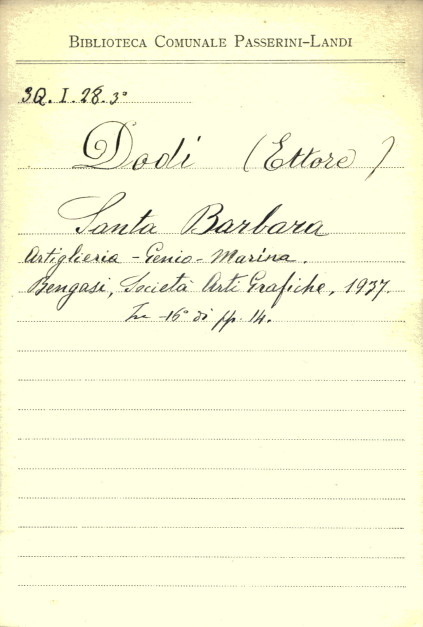 BIBLIOTECA COMUNALE PASSERINI-LANDI
3Q. I. 28. 3°
Dodi (Ettore)
Santa Barbara
Artiglieria - Genio - Marina.
Bengasi, Società Arti Grafiche, 1937.
In -16° di pp. 14.